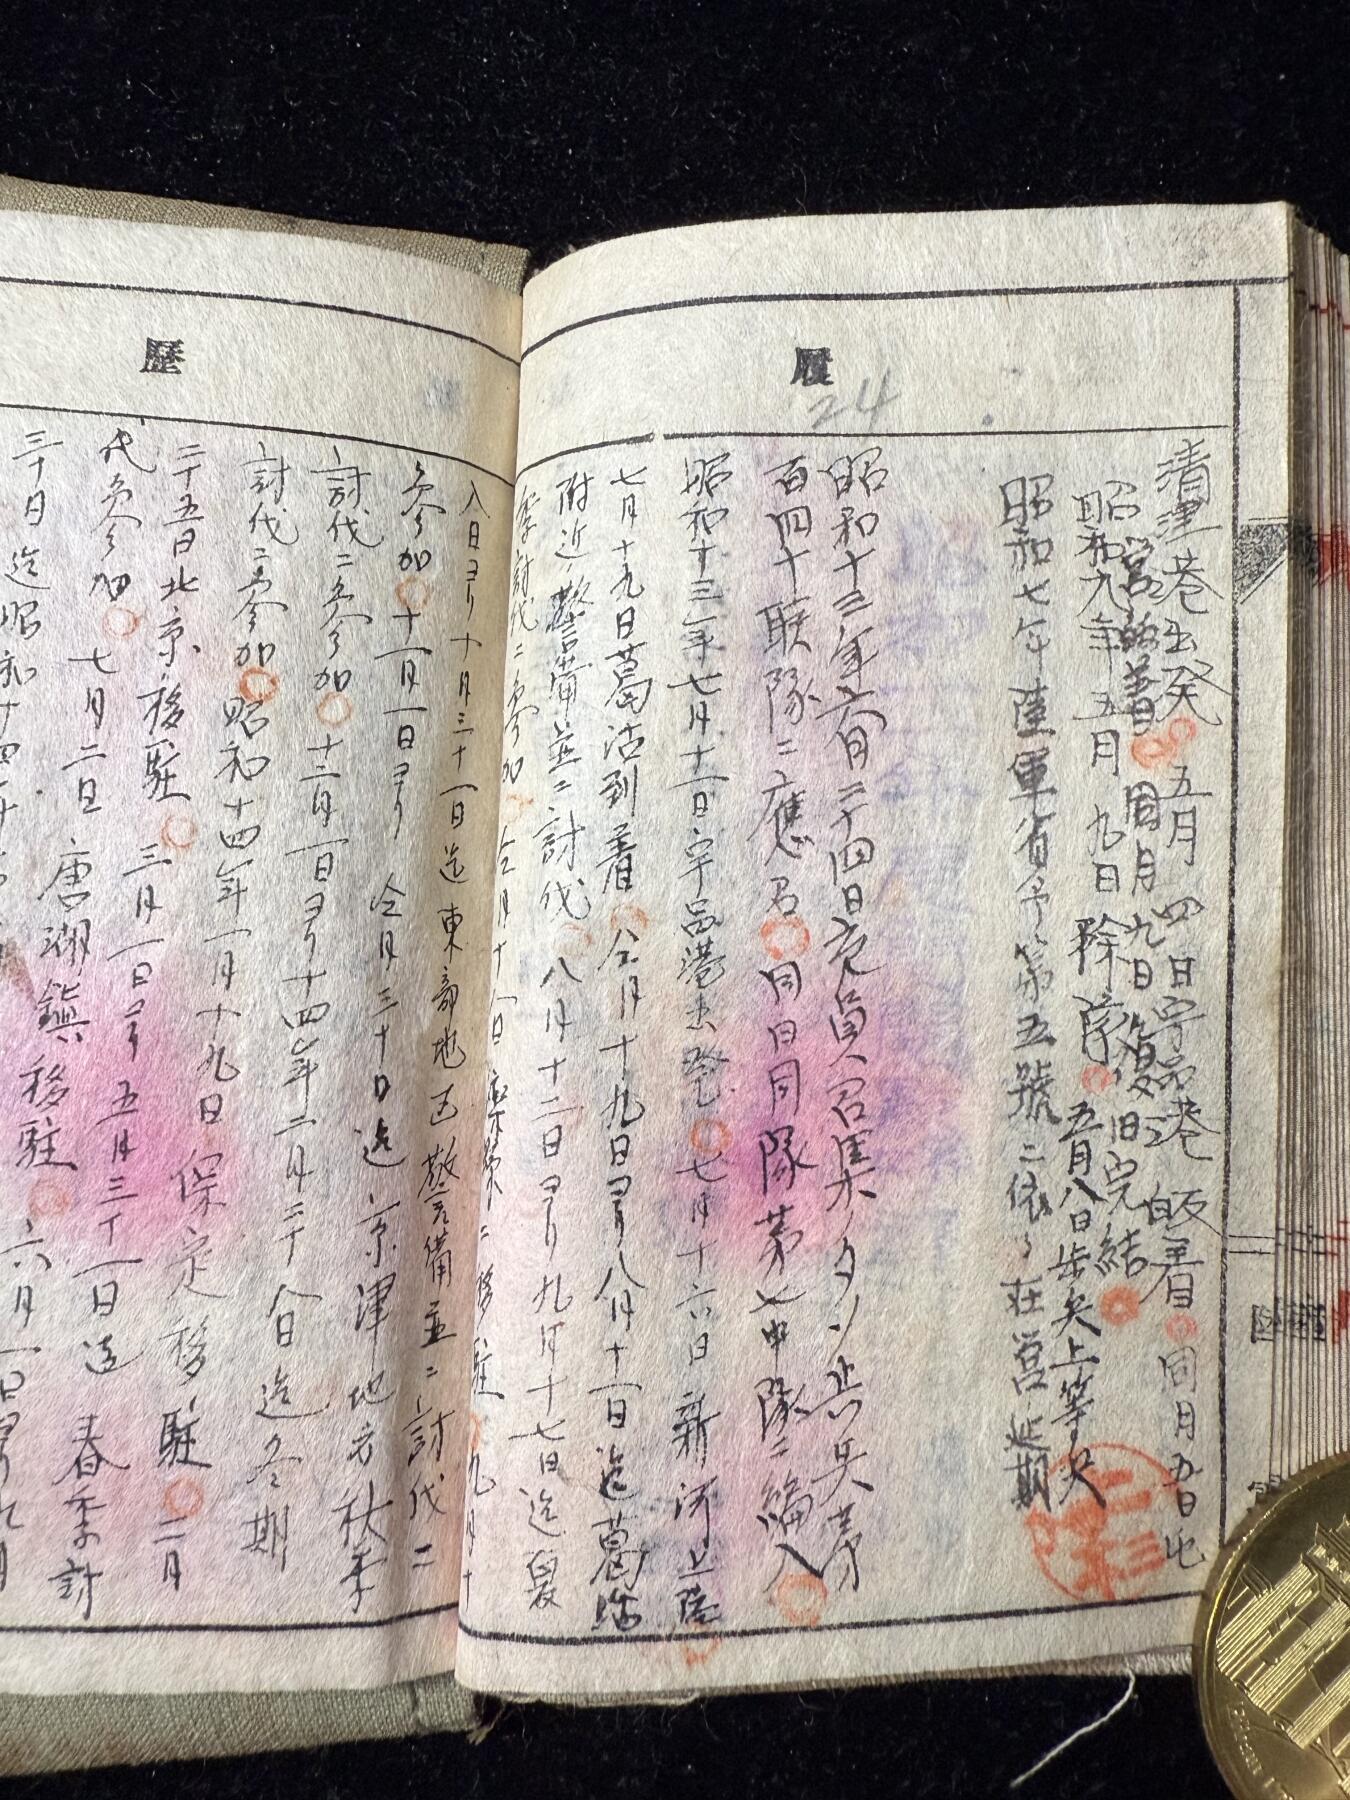 履
24
清津港出発五月四日宇品港皈着同月五日屯
営帰着同月九日復旧完結
昭和九年五月九日除隊五月八日歩兵上等兵
昭和七年陸軍省令第五號ニ依リ在営延期
昭和十三年六月二十四日充員召集ノタメ歩兵第
百四十联隊ニ應召同日同隊第七中隊ニ編入
昭和十三年七月十一日宇品港出発七月十六日新河上陸
七月十九日葛沽到着仝月十九日ヨリ八月十一日迄葛沽
附近警備並ニ討伐八月十二日ヨリ九月十七日迄夏
季討伐ニ参加仝月十八日 ニ移駐九月十
歴
八日ヨリ十月三十一日迄東部地区警備並ニ討伐ニ
参加十一月一日ヨリ仝月三十日迄京津地方秋季
討伐ニ参加十二月一日ヨリ十四年二月二十八日迄冬期
討伐ニ参加昭和十四年一月十九日保定移駐二月
二十五日北京移駐三月一日ヨリ五月三十一日迄春季討
伐参加七月二日唐湖鎮移駐六月一日ヨリ九月
三十日迄昭和十四年